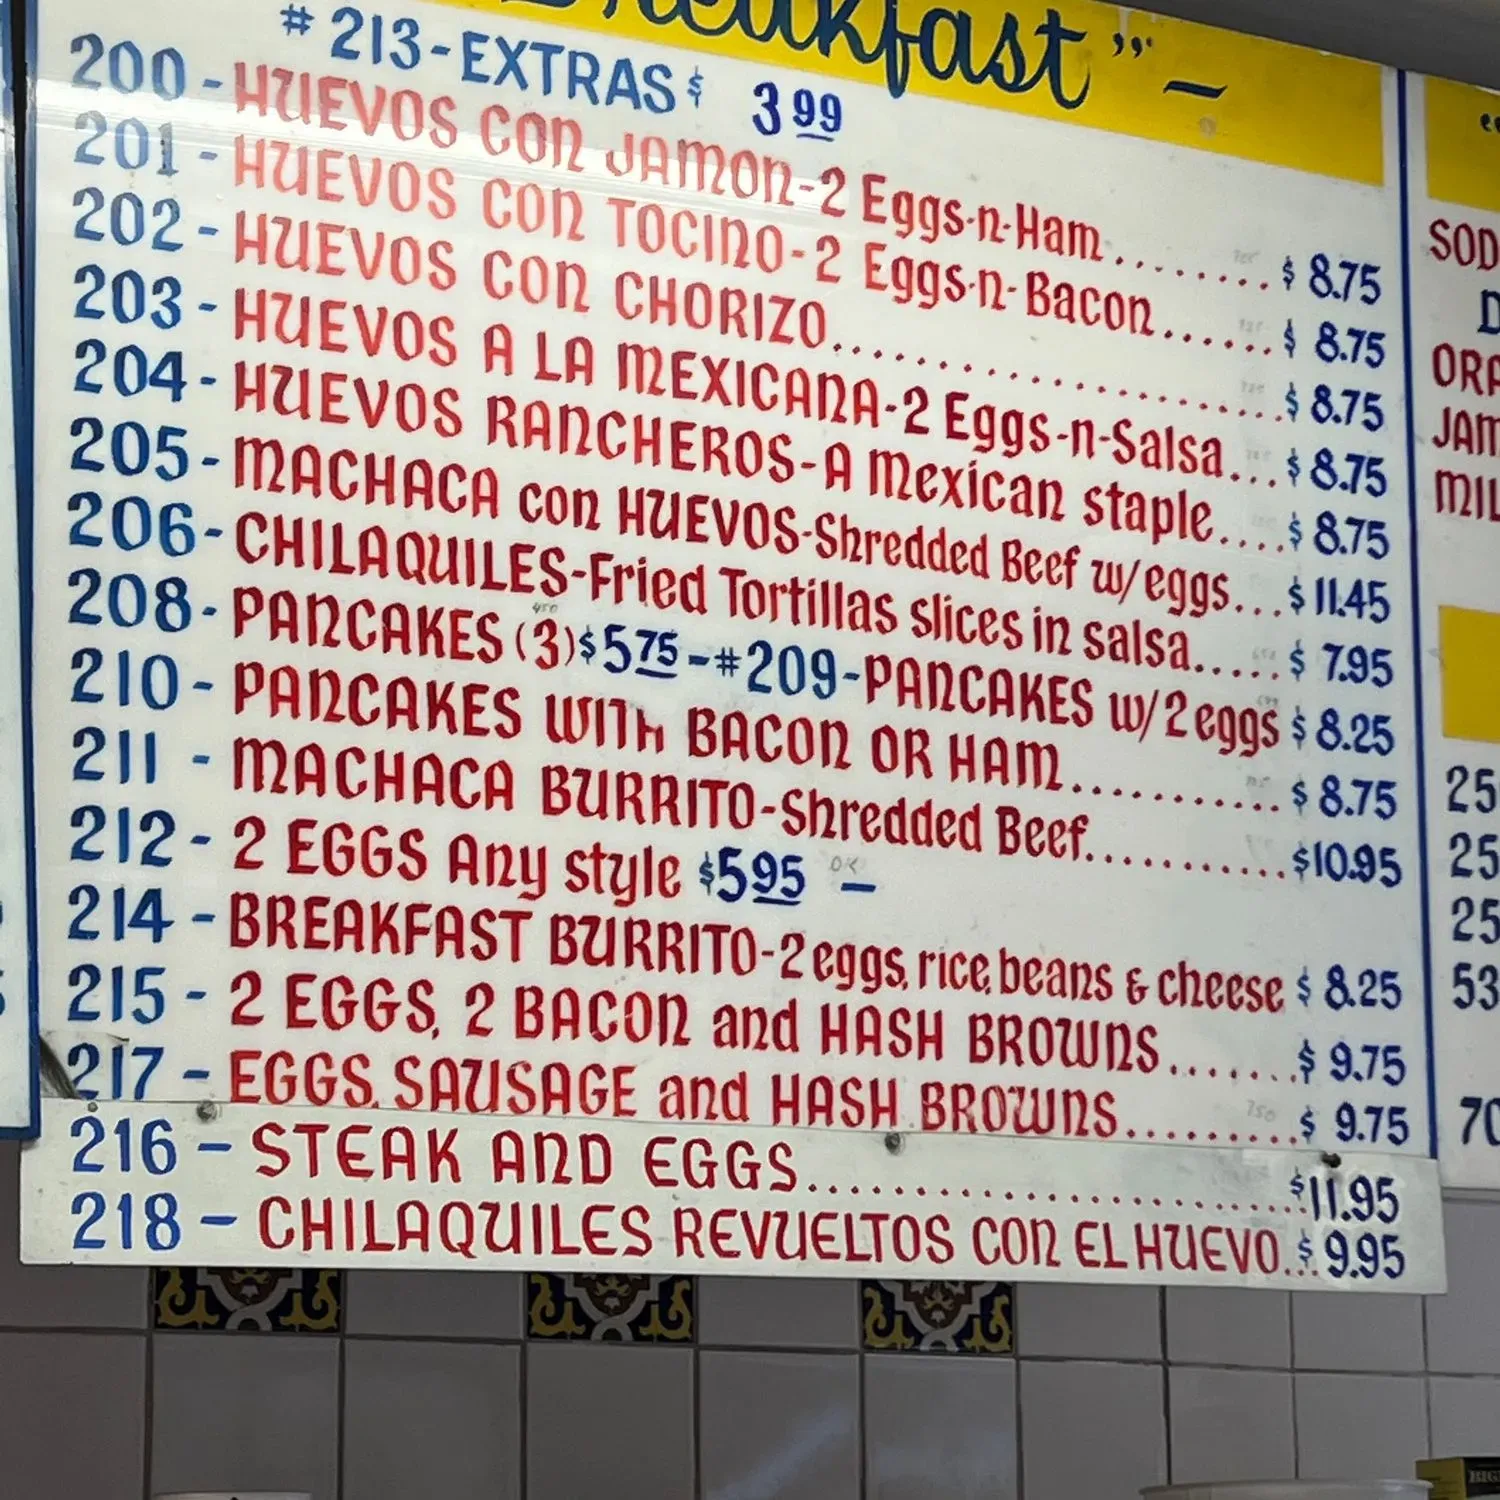 Breakfast" —
# 213-EXTRAS $ 3.99
200 - HUEVOS CON JAMON-2 Eggs-n-Ham........$ 8.75
201 - HUEVOS CON TOCINO-2 Eggs-n-Bacon......$ 8.75
202 - HUEVOS CON CHORIZO.......................$ 8.75
203 - HUEVOS A LA MEXICANA-2 Eggs-n-Salsa...$ 8.75
204 - HUEVOS RANCHEROS-A Mexican staple....$ 8.75
205 - MACHACA con HUEVOS-Shredded Beef w/eggs...$ 11.45
206 - CHILAQUILES-Fried Tortillas slices in salsa.....$ 7.95
208 - PANCAKES (3) $5.75 - #209-PANCAKES w/2 eggs $ 8.25
210 - PANCAKES WITH BACON OR HAM...........$ 8.75
211 - MACHACA BURRITO-Shredded Beef...........$10.95
212 - 2 EGGS Any style $5.95 OK —
214 - BREAKFAST BURRITO-2 eggs, rice, beans & cheese $ 8.25
215 - 2 EGGS, 2 BACON and HASH BROWNS.......$ 9.75
217 - EGGS, SAUSAGE and HASH BROWNS.........$ 9.75
216 - STEAK AND EGGS..........................$11.95
218 - CHILAQUILES REVUELTOS CON EL HUEVO...$ 9.95
SOD
D
ORA
JAM
MIL
25
25
25
53
70